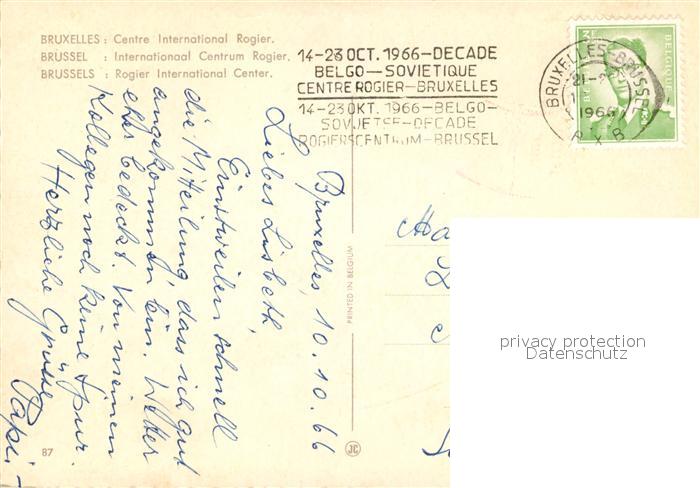 BRUXELLES : Centre International Rogier.
BRÜSSEL : Internationaal Centrum Rogier.
BRUSSELS : Rogier International Center.
14-23 OCT. 1966-DECADE
BELGO-SOVIETIQUE
CENTRE ROGIER-BRUXELLES
14-23 OKT. 1966-BELGO-
SOVJETSE-DECADE
ROGIERSCENTRUM-BRUSSEL
BRUXELLES-BRUSSEL
1966
BELGIQUE
Bruxelles, 10.10.66
Liebes Lisbeth,
Einstweilen schnell
die Mitteilung, dass ich gut
angekommen bin. Wetter
etwas bedeckt. Von meinen
Kollegen noch keine Spur.
Herzliche Grüsse
Papi.-
PRINTED IN BELGIUM
JC
87
privacy protection
Datenschutz